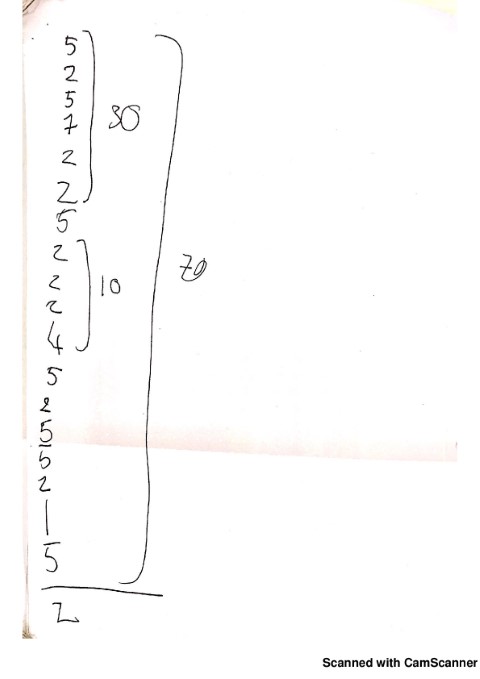 5
2
5
7
2
2
30
5
2
2
2
4
10
5
2
5
5
2
1
5
70
2
Scanned with CamScanner